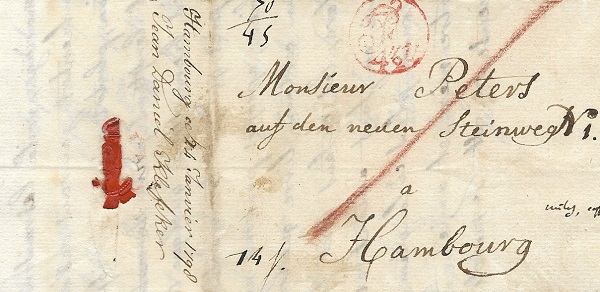 Hambourg ce 25 Janvier 1798
Jean Daniel Klefeker
45
Monsieur Peters
auf den neuen Steinweg N 1.
a
Hambourg
14 f.